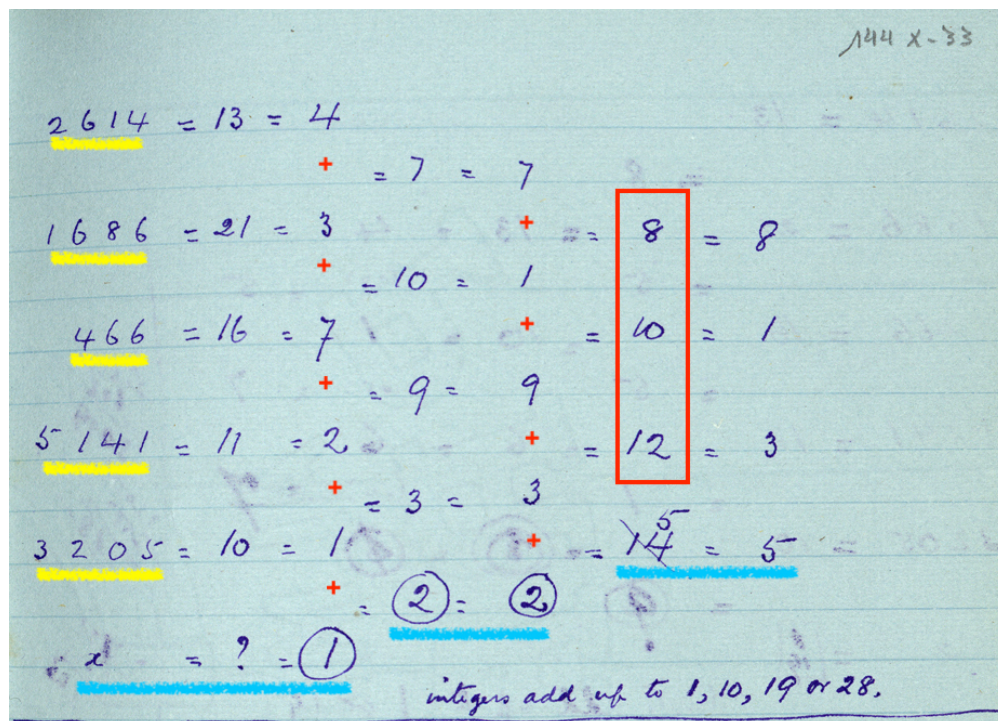 144 X-33
2614 = 13 = 4
+ = 7 = 7
1686 = 21 = 3 + = 8 = 8
+ = 10 = 1
466 = 16 = 7 + = 10 = 1
+ = 9 = 9
5141 = 11 = 2 + = 12 = 3
+ = 3 = 3
3205 = 10 = 1 + = 14 5 = 5
+ = 2 = 2
x = ? = 1
integers add up to 1, 10, 19 or 28.